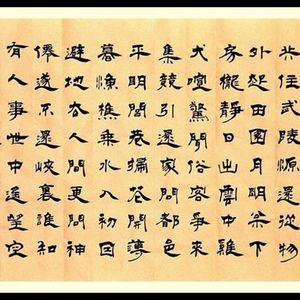 共住武陵源還從物
外起田園月明松下
房櫳靜日出雲中雞
犬喧驚聞俗客爭來
集競引還家問都邑
平明閭巷掃花開薄
暮漁樵乘水入初因
避地去人間更問神
僊遂不還峽裏誰知
有人事世中遙望空